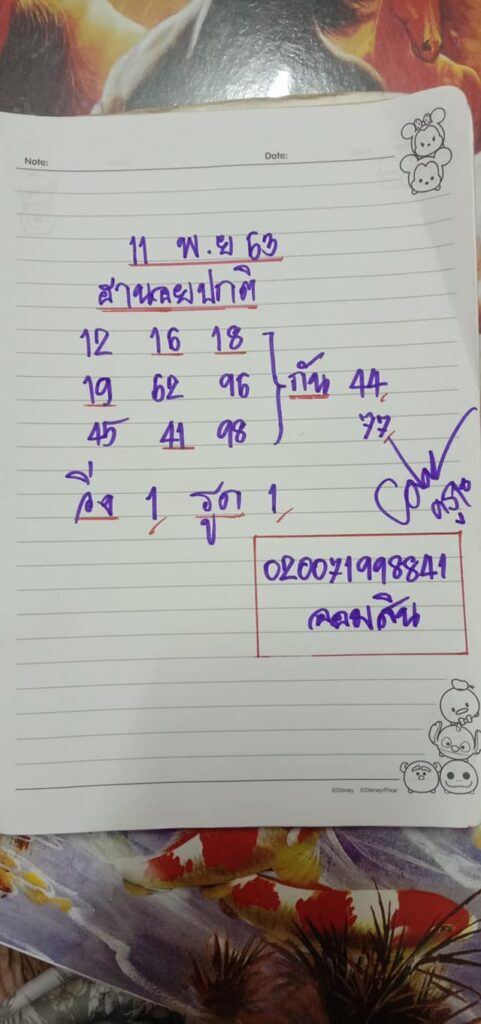 Note: Date:
11 พ.ย 63
ฮานอยปกติ
12 16 18
19 62 96 กัน 44
45 41 98 77
วิ่ง 1 รูด 1
020071998841
ออมสิน
©Disney ©Disney/Pixar